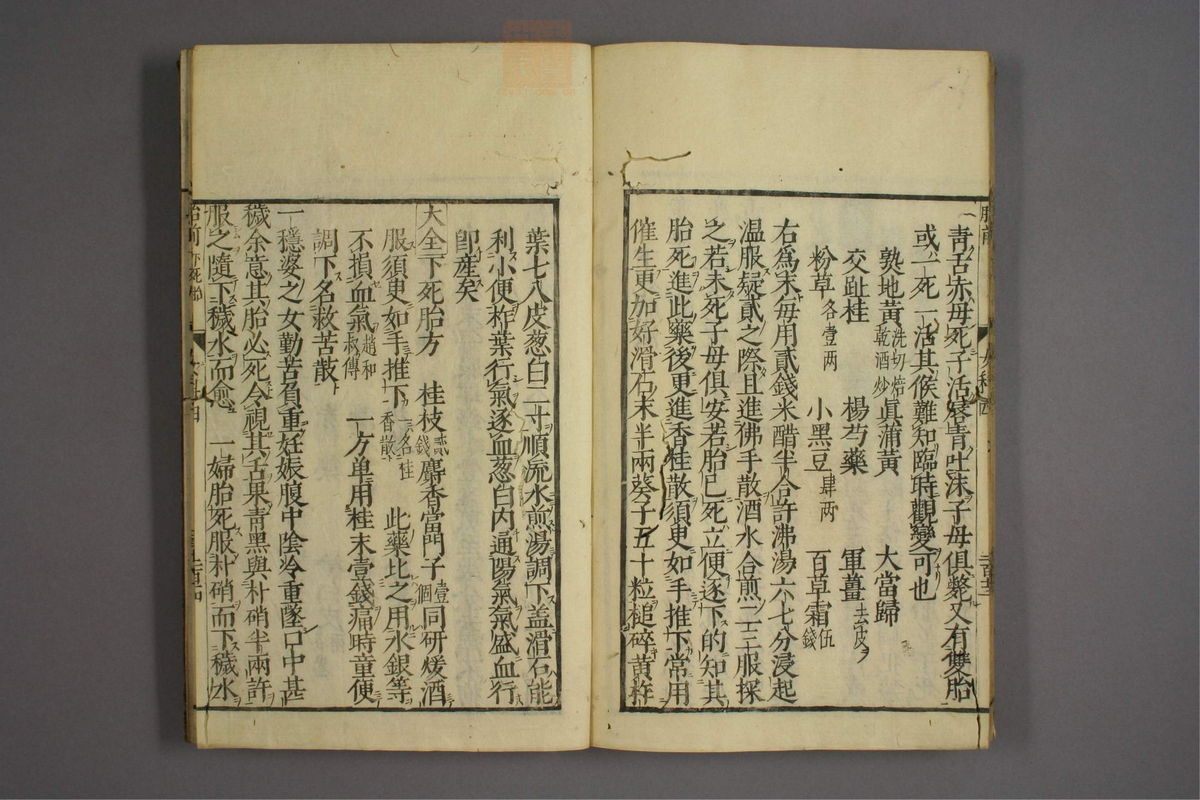 青舌赤母死子活唇青吐沫子母俱斃又有雙胎
或一死一活其候難知臨時觀變可也
熟地黃洗切焙乾酒炒 眞蒲黃 大當歸
交趾桂 楊芍藥 軍薑去皮
粉草各壹两 小黑豆肆两 百草霜伍錢
右爲末每用貳錢米醋半合許沸湯六七分浸起
溫服疑貳之際且進佛手散酒水合煎二三服探
之若未死子母俱安若胎已死立便逐下的知其
胎死進此藥後更進香桂散須臾如手推下常用
催生更加好滑石末半兩葵子五十粒槌碎黄柞
葉七八皮葱白二寸順流水煎湯調下盖滑石能
利小便柞葉行氣逐血葱白内通陽氣氣盛血行
卽産矣
大全下死胎方 桂枝貳錢 麝香當門子壹個 同研煖酒
服須臾如手推下一名桂香散 此藥比之用水銀等
不損血氣趙和叔傳 一方单用桂末壹錢痛時童便
調下名救苦散
一穩婆之女勤苦負重妊娠腹中陰冷重墜口中甚
穢余意其胎必死令視其舌果青黑與朴硝半兩許
服之隨下穢水而愈 一婦胎死服朴硝而下穢水